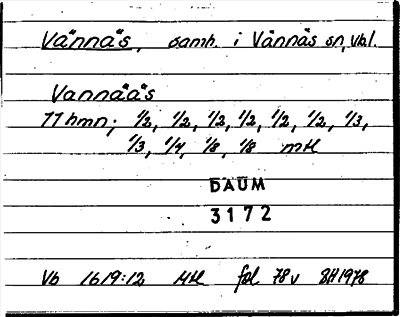 Vännäs, samh. i Vännäs sn, Vbl.
Vannäås
11 hmn; 1/2, 1/2, 1/2, 1/2, 1/2, 1/2, 1/3,
1/3, 1/4, 1/8, 1/8 mtl
DAUM
3172
Vb 1619:12 Mtl fol 78v BH1978